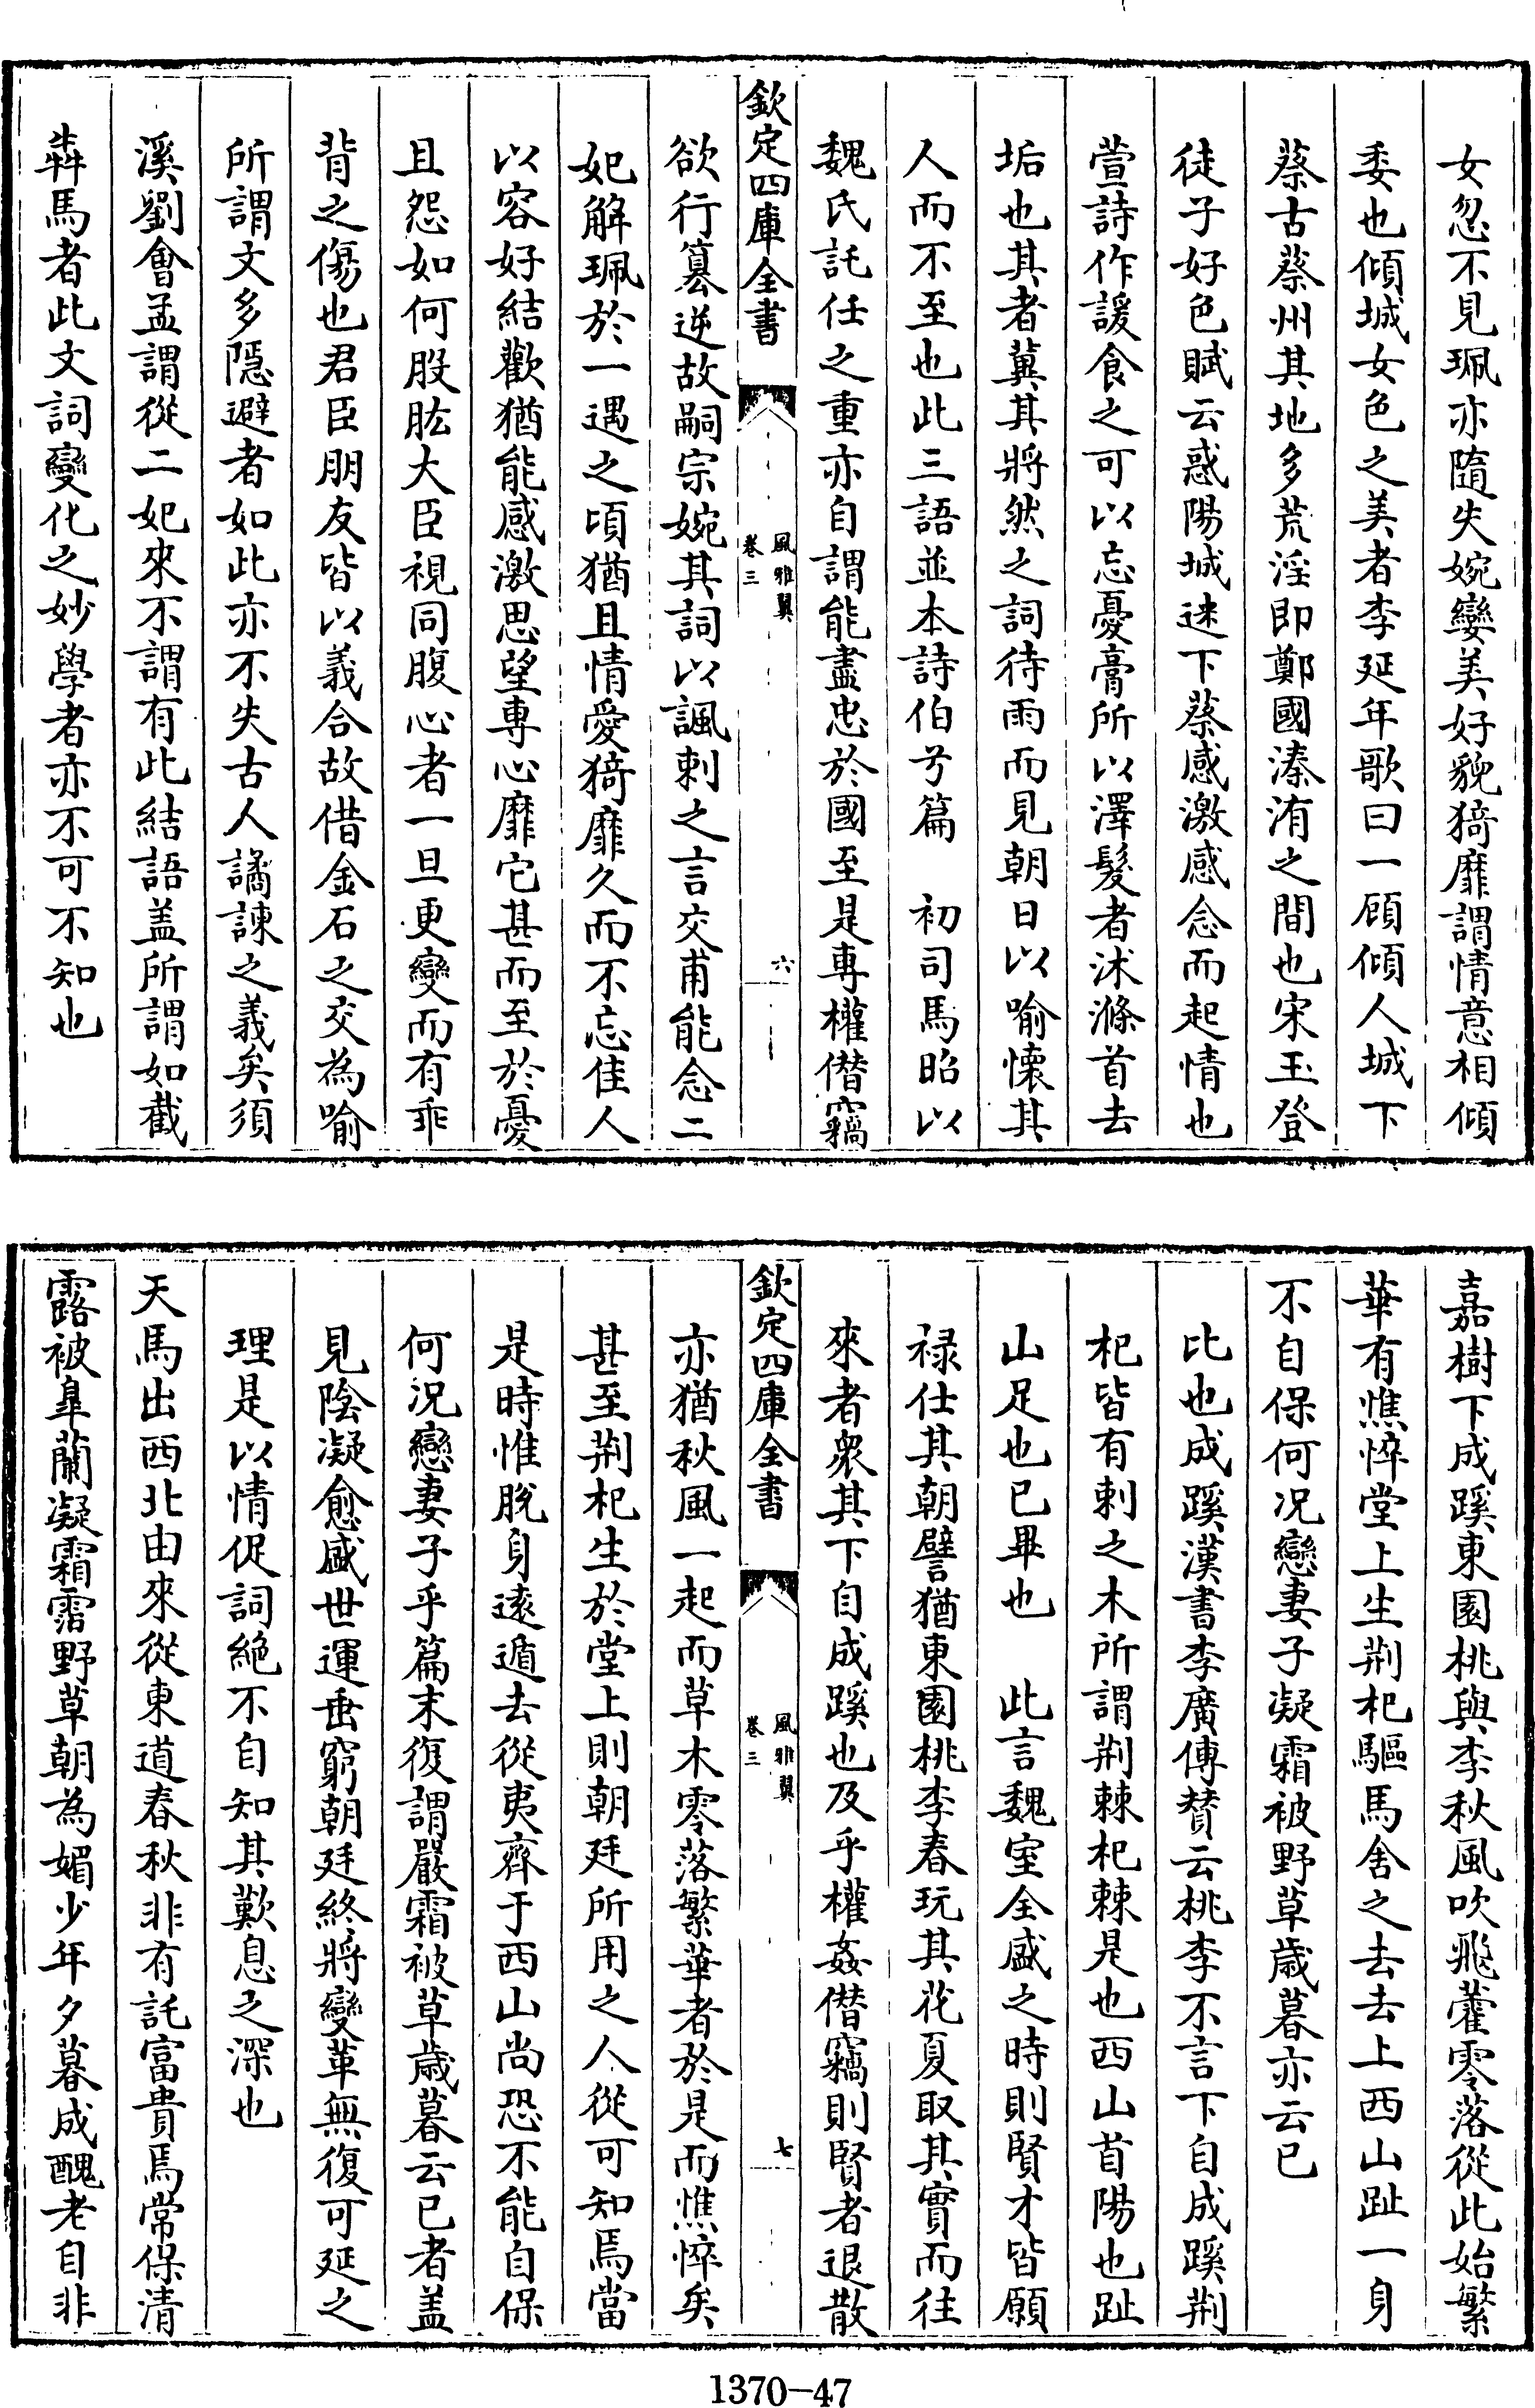 女忽不見珮亦隨失婉孌美好貌猗靡謂情意相傾
委也傾城女色之美者李延年歌曰一顧傾人城下
蔡古蔡州其地多荒淫即鄭國溱洧之間也宋玉登
徒子好色賦云惑陽城迷下蔡感激感念而起情也
萱詩作諼食之可以忘憂膏所以澤髮者沐滌首去
垢也其者冀其將然之詞待雨而見朝日以喻懷其
人而不至也此三語並本詩伯兮篇　初司馬昭以
魏氏託任之重亦自謂能盡忠於國至是專權僣竊
欽定四庫全書
風雅翼
卷三
六
欲行簒逆故嗣宗婉其詞以諷刺之言交甫能念二
妃解珮於一遇之頃猶且情愛猗靡久而不忘佳人
以容好結歡猶能感激思望專心靡它甚而至於憂
且怨如何股肱大臣視同腹心者一旦更變而有乖
背之傷也君臣朋友皆以義合故借金石之交為喻
所謂文多隱避者如此亦不失古人譎諫之義矣須
溪劉會孟謂從二妃來不謂有此結語盖所謂如截
犇馬者此文詞變化之妙學者亦不可不知也
嘉樹下成蹊東園桃與李秋風吹飛藿零落從此始繁
華有憔悴堂上生荆杞驅馬舍之去去上西山趾一身
不自保何況戀妻子凝霜被野草歳暮亦云已
比也成蹊漢書李廣傳賛云桃李不言下自成蹊荆
杞皆有刺之木所謂荆棘杞棘是也西山首陽也趾
山足也已畢也　此言魏室全盛之時則賢才皆願
禄仕其朝譬猶東園桃李春玩其花夏取其實而往
來者衆其下自成蹊也及乎權姦僣竊則賢者退散
欽定四庫全書
風雅翼
卷三
七
亦猶秋風一起而草木零落繁華者於是而憔悴矣
甚至荆杞生於堂上則朝廷所用之人從可知焉當
是時惟脫身逺遁去從夷齊于西山尚恐不能自保
何況戀妻子乎篇末復謂嚴霜被草歳暮云已者盖
見陰凝愈盛世運垂窮朝廷終將變革無復可延之
理是以情促詞絶不自知其歎息之深也
天馬出西北由來從東道春秋非有託富貴焉常保清
露被臯蘭凝霜霑野草朝為媚少年夕暮成醜老自非
1370—47